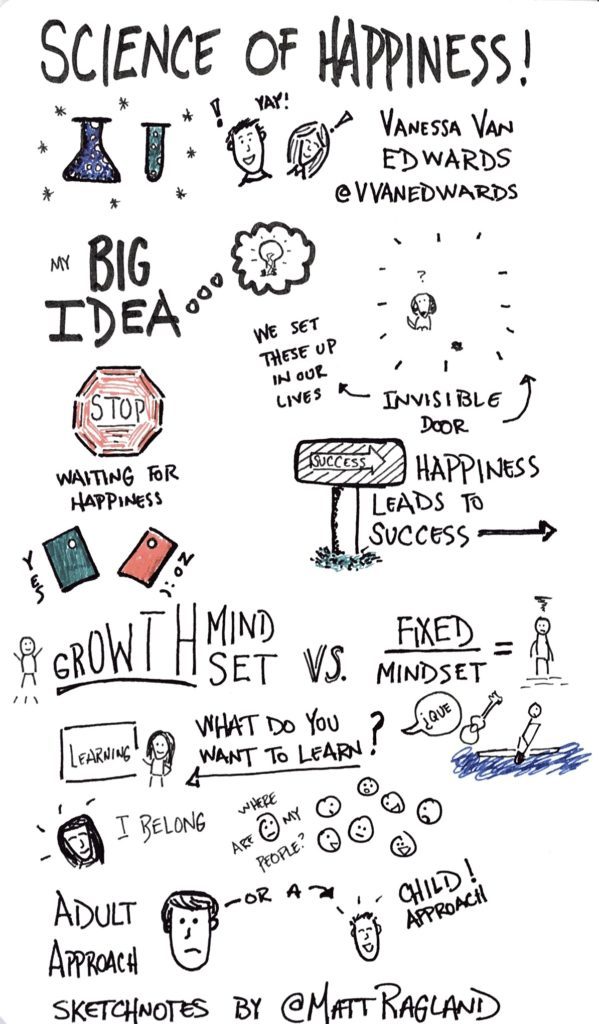 SCIENCE OF HAPPINESS!
! YAY! !
VANESSA VAN
EDWARDS
@VVANEDWARDS
MY BIG
IDEA
?
WE SET
THESE UP
IN OUR
LIVES
INVISIBLE
DOOR
STOP
WAITING FOR
HAPPINESS
SUCCESS
HAPPINESS
LEADS TO
SUCCESS
YES
NO :(
GROWTH MIND
SET
VS.
FIXED
MINDSET
=
LEARNING
WHAT DO YOU
WANT TO LEARN?
¿QUE
I BELONG
WHERE
ARE MY
PEOPLE?
ADULT
APPROACH
OR A
CHILD!
APPROACH
SKETCHNOTES BY @MATTRAGLAND